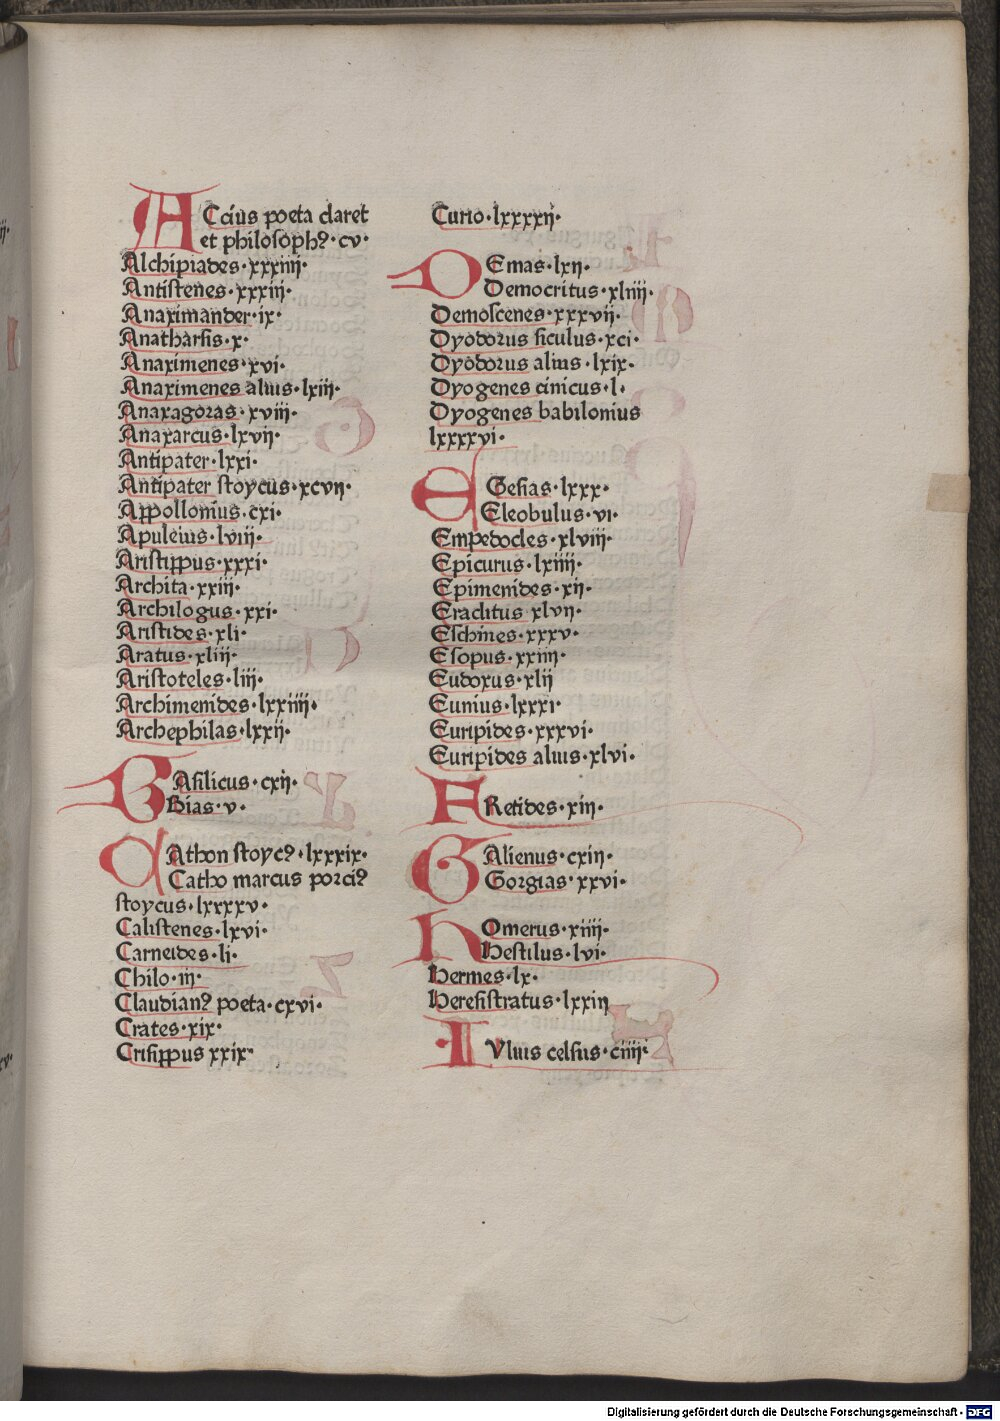 ACcius poeta claret
et philosophꝰ·cv·
Alchipiades·xxxiiij·
Antistenes·xxxiij·
Anaximander·ix·
Anatharsis·x·
Anaximenes·xvi·
Anaximenes alius·lxiij·
Anaxagoras·xviij·
Anaxarcus·lxvij·
Antipater·lxxi·
Antipater stoycus·xcvij·
Appollonius·cxi·
Apuleius·lviij·
Aristippus·xxxi·
Archita·xxiij·
Archilogus·xxi·
Aristides·xli·
Aratus·xliij·
Aristoteles·liij·
Archimenides·lxxiiij·
Archephilas·lxxij·
BAsilicus·cxij·
Bias·v·
CAthon stoycꝰ·lxxxix·
Catho marcus porciꝰ
stoycus·lxxxxv·
Calistenes·lxvi·
Carneides·li·
Chilo·iij·
Claudianꝰ poeta·cxvi·
Crates·xix·
Crisippus xxix·
Curio·lxxxxij·
DEmas·lxij·
Democritus·xliiij·
Demoscenes·xxxvij·
Dyodorus siculus·xci·
Dyodorus alius·lxix·
Dyogenes cinicus·l·
Dyogenes babilonius
lxxxxvi·
EGesias·lxxx·
Eleobulus·vi·
Empedocles·xlviij·
Epicurus·lxiiij·
Epimenides·xij·
Eraclitus xlvij·
Eschines·xxxv·
Esopus·xxiiij·
Eudoxus·xlij
Eunius·lxxxi·
Euripides·xxxvi·
Euripides alius·xlvi·
FRetides·xiij·
GAlienus·cxiij·
Gorgias·xxvi·
HOmerus·xiiij·
Hestilus·lvi·
Hermes·lx·
Heresistratus·lxxiij
IUlius celsus·ciiij·
Digitalisierung gefördert durch die Deutsche Forschungsgemeinschaft - DFG